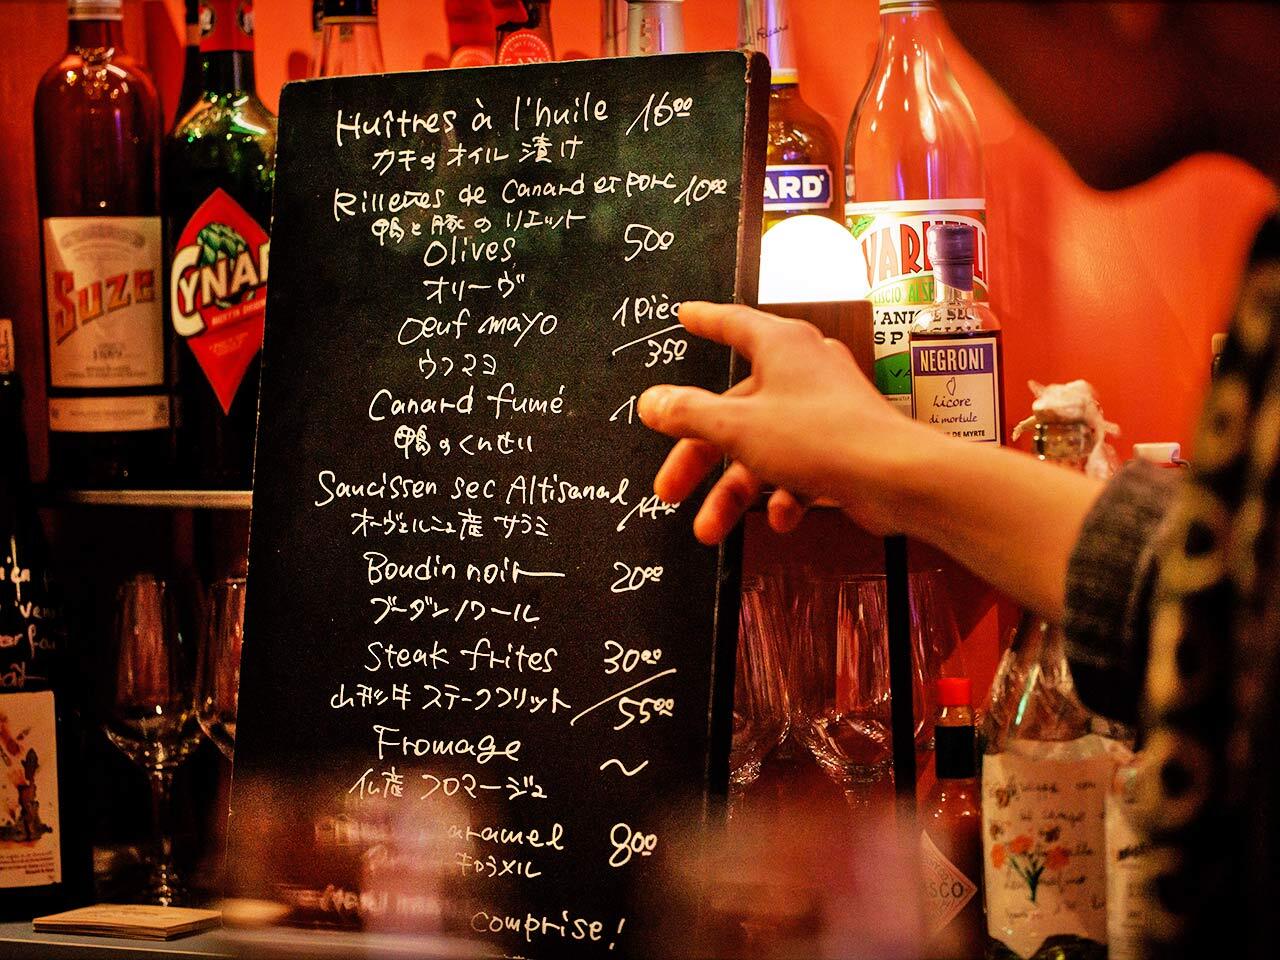 Huîtres à l'huile 16⁰⁰
カキのオイル漬け
Rillettes de Canard et porc 10⁰⁰
鴨と豚のリエット
Olives 50⁰
オリーヴ
Oeuf mayo 1 Pièc
ウフマヨ 35⁰
Canard fumé 1
鴨のくんせい
Saucissen sec Altisanal 14⁰⁰
オーヴェルニュ産 サラミ
Boudin noir 20⁰⁰
ブーダンノワール
Steak frites 30⁰⁰
山形牛ステークフリット 55⁰⁰
Fromage ~
仏産フロマージュ
aramel 8⁰⁰
キャラメル
comprise!
Suze
CYNAR
ARD
VARNELLI
L'ANICE SECCO
SPECIALE
NEGRONI
Licore
di mortule
DE MYRTE
Ricard
SCO